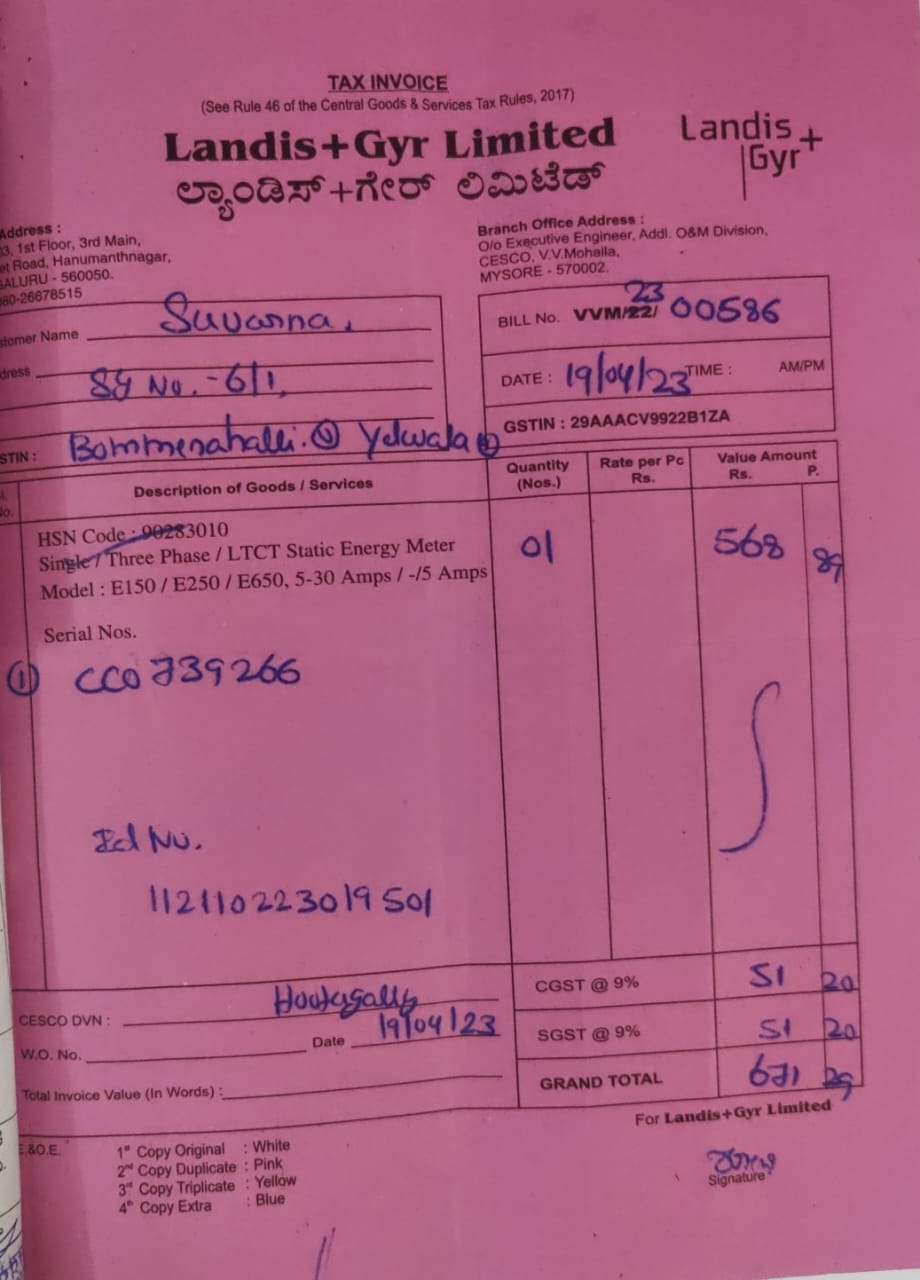 TAX INVOICE
(See Rule 46 of the Central Goods & Services Tax Rules, 2017)
Landis+Gyr Limited
ಲ್ಯಾಂಡಿಸ್+ಗೇರ್ ಲಿಮಿಟೆಡ್
Landis
Gyr+
Address :
1st Floor, 3rd Main,
Road, Hanumanthnagar,
ALURU - 560050.
080-26678515
Branch Office Address :
O/o Executive Engineer, Addl. O&M Division,
CESCO, V.V.Mohalla,
MYSORE - 570002.
stomer Name Suvarna.
dress Sy No. - 6/1,
STIN : Bommenahalli. Yelwala
BILL No. VVM/22/ 23 00586
DATE : 19/04/23 TIME : AM/PM
GSTIN : 29AAACV9922B1ZA
No. Description of Goods / Services Quantity (Nos.) Rate per Pc Rs. Value Amount Rs. P.
HSN Code : 90283010
Single / Three Phase / LTCT Static Energy Meter 01 568 89
Model : E150 / E250 / E650, 5-30 Amps / -/5 Amps
Serial Nos.
① CC0739266
Id No.
112110223019501
CGST @ 9% 51 20
SGST @ 9% 51 20
GRAND TOTAL 671 29
CESCO DVN : Hootagally
W.O. No. Date 19/04/23
Total Invoice Value (In Words) :
For Landis+Gyr Limited
E.&O.E.
1st Copy Original : White
2nd Copy Duplicate : Pink
3rd Copy Triplicate : Yellow
4th Copy Extra : Blue
Signature